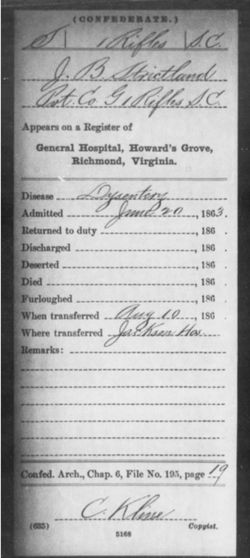 (CONFEDERATE.)
S 1 Rifles S.C.
J. B. Strictland
Pvt. Co. G 1 Rifles S.C.
Appears on a Register of
General Hospital, Howard's Grove,
Richmond, Virginia.
Disease Dysentery
Admitted June 20, 1863.
Returned to duty , 186 .
Discharged , 186 .
Deserted , 186 .
Died , 186 .
Furloughed , 186 .
When transferred Aug 10, 186 .
Where transferred Hos
Remarks:
Confed. Arch., Chap. 6, File No. 195, page 19
C. Kline
(635) Copyist.
5168